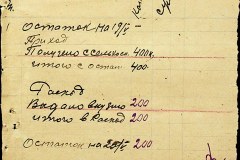 Остаток на 19/V -
Приход
Получено 400к.
итого с остат. 400.
Расход
Выдано 200
итого в Расход 200
Остаток на 20/V 200